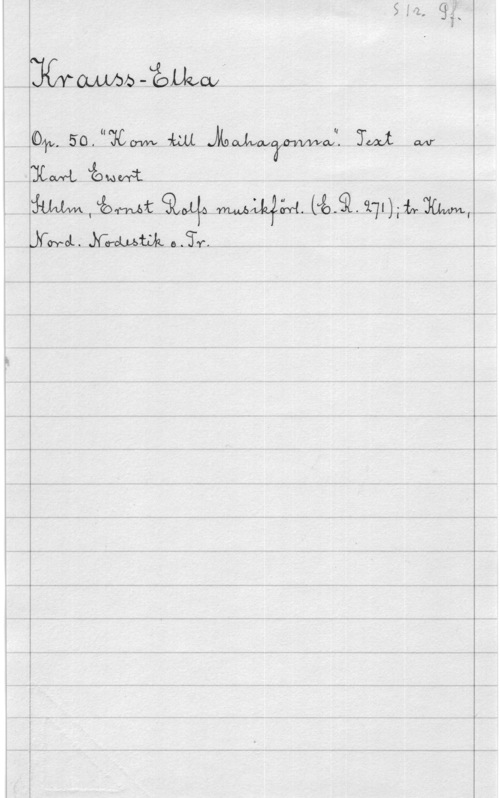 S 12. Pf.
Krauss-Elka
Op. 50. "Kom till Mahagonna". Text av
Karl Ewert
Sthlm, Ernst Rolfs musikförl. (E.R. 271); tr Khvn,
Nord. Nodestik o. Tr.